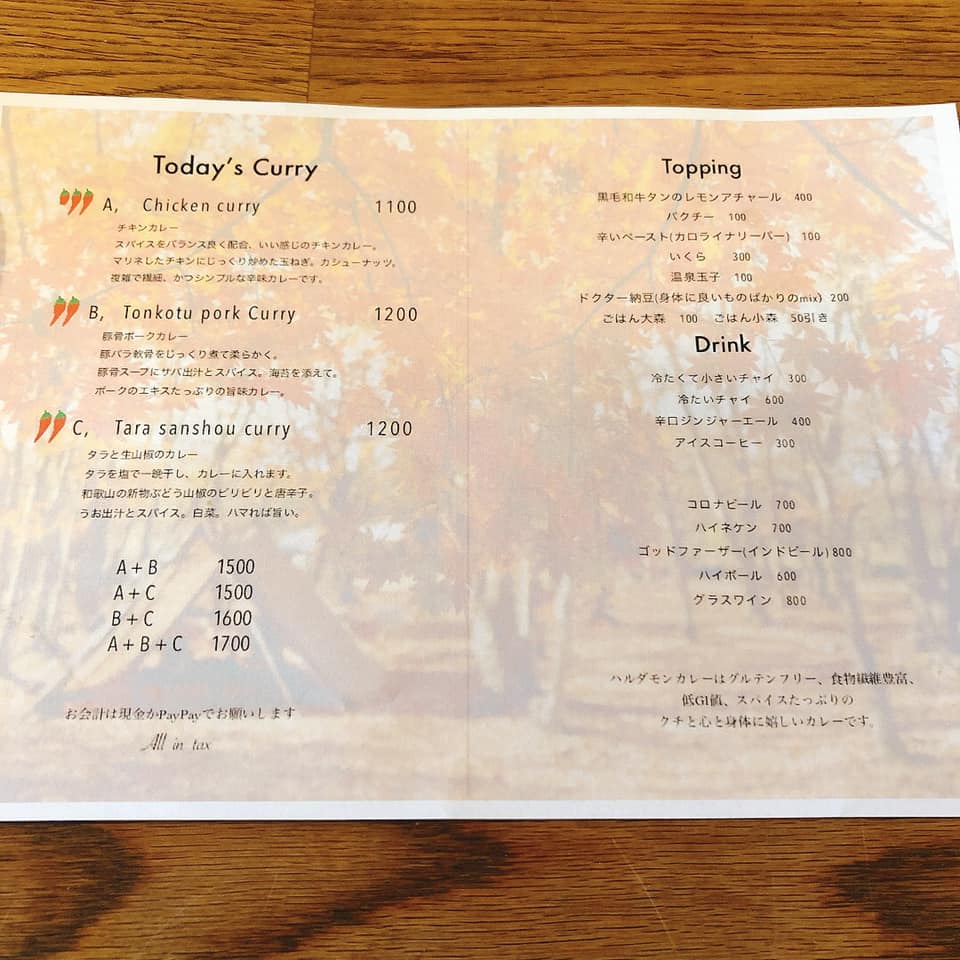 Today's Curry
A, Chicken curry 1100
チキンカレー
スパイスをバランス良く配合、いい感じのチキンカレー。
マリネしたチキンにじっくり炒めた玉ねぎ。カシューナッツ。
複雑で繊細、かつシンプルな辛味カレーです。
B, Tonkotu pork Curry 1200
豚骨ポークカレー
豚バラ軟骨をじっくり煮て柔らかく。
豚骨スープにサバ出汁とスパイス。海苔を添えて。
ポークのエキスたっぷりの旨味カレー。
C, Tara sanshou curry 1200
タラと生山椒のカレー
タラを塩で一晩干し、カレーに入れます。
和歌山の新物ぶどう山椒のビリビリと唐辛子。
うお出汁とスパイス。白菜。ハマれば旨い。
A+B 1500
A+C 1500
B+C 1600
A+B+C 1700
お会計は現金かPayPayでお願いします
All in tax
Topping
黒毛和牛タンのレモンアチャール 400
パクチー 100
辛いペースト(カロライナリーパー) 100
いくら 300
温泉玉子 100
ドクター納豆(身体に良いものばかりのmix) 200
ごはん大森 100 ごはん小森 50引き
Drink
冷たくて小さいチャイ 300
冷たいチャイ 600
辛口ジンジャーエール 400
アイスコーヒー 300
コロナビール 700
ハイネケン 700
ゴッドファーザー(インドビール) 800
ハイボール 600
グラスワイン 800
ハルダモンカレーはグルテンフリー、食物繊維豊富、
低GI値、スパイスたっぷりの
クチと心と身体に嬉しいカレーです。